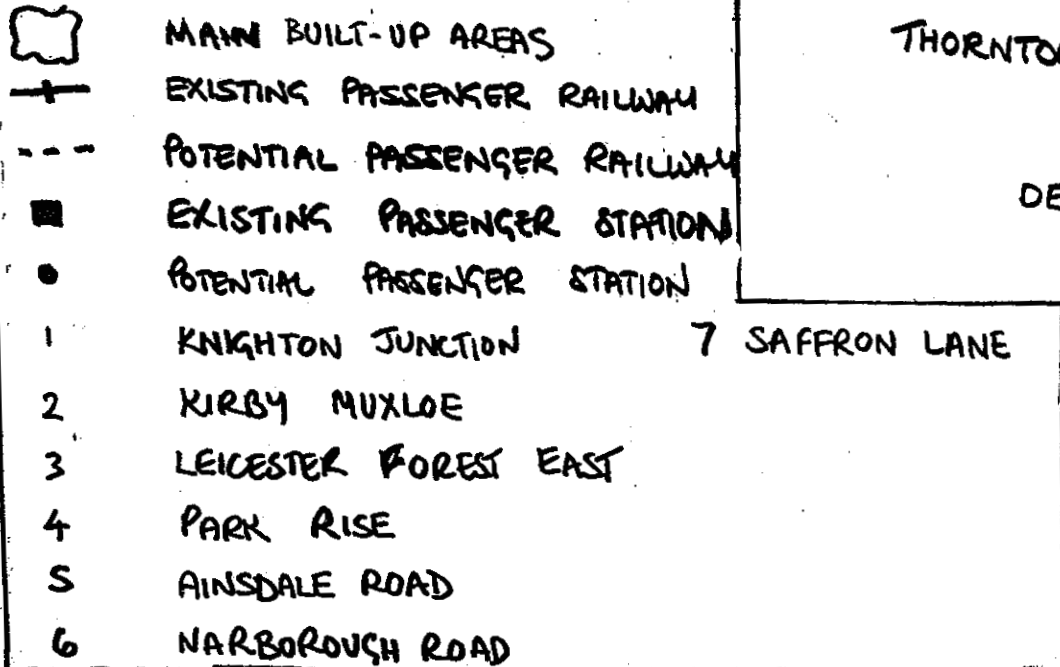 MAIN BUILT-UP AREAS
EXISTING PASSENGER RAILWAY
POTENTIAL PASSENGER RAILWAY
EXISTING PASSENGER STATION
POTENTIAL PASSENGER STATION
1 KNIGHTON JUNCTION
2 KIRBY MUXLOE
3 LEICESTER FOREST EAST
4 PARK RISE
5 AINSDALE ROAD
6 NARBOROUGH ROAD
7 SAFFRON LANE
THORNTO
DE